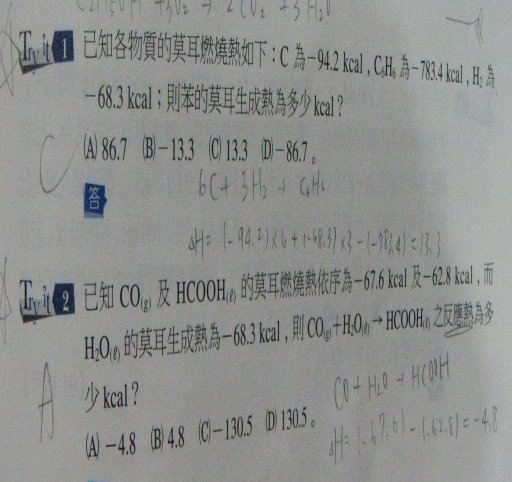 C2H5OH + 3O2 → 2CO2 + 3H2O
Try it 1 已知各物質的莫耳燃燒熱如下：C 為－94.2 kcal , C6H6 為－783.4 kcal , H2 為
－68.3 kcal；則苯的莫耳生成熱為多少 kcal？
(A) 86.7 (B)－13.3 (C) 13.3 (D)－86.7。
C
6C + 3H2 → C6H6
答
ΔH = (-94.2)×6 + (-68.3)×3 - (-783.4) = 13.3
Try it 2 已知 CO(g) 及 HCOOH(ℓ) 的莫耳燃燒熱依序為－67.6 kcal 及－62.8 kcal , 而
H2O(ℓ) 的莫耳生成熱為－68.3 kcal , 則 CO(g)＋H2O(ℓ)→HCOOH(ℓ) 之反應熱為多
少 kcal？
CO + H2O → HCOOH
A
(A)－4.8 (B) 4.8 (C)－130.5 (D) 130.5。
ΔH = (-67.6) - (-62.8) = -4.8